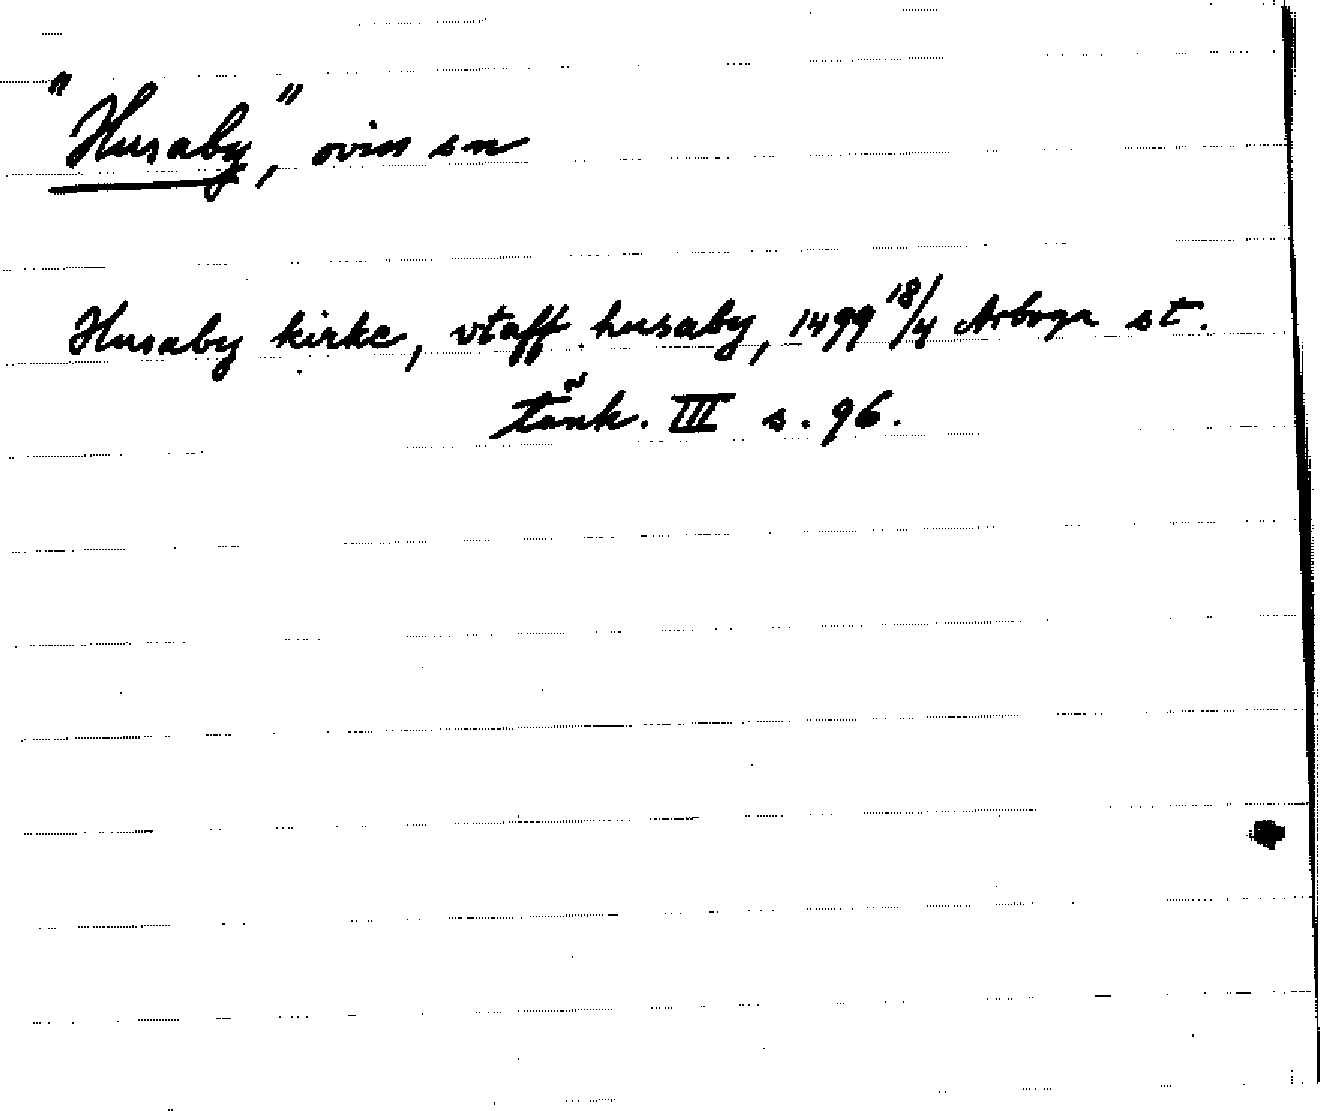 "Husaby", oviss sn
Husaby kirke, vtaff husaby, 1499 18/4 Arboga st.
tänk. III s. 96.